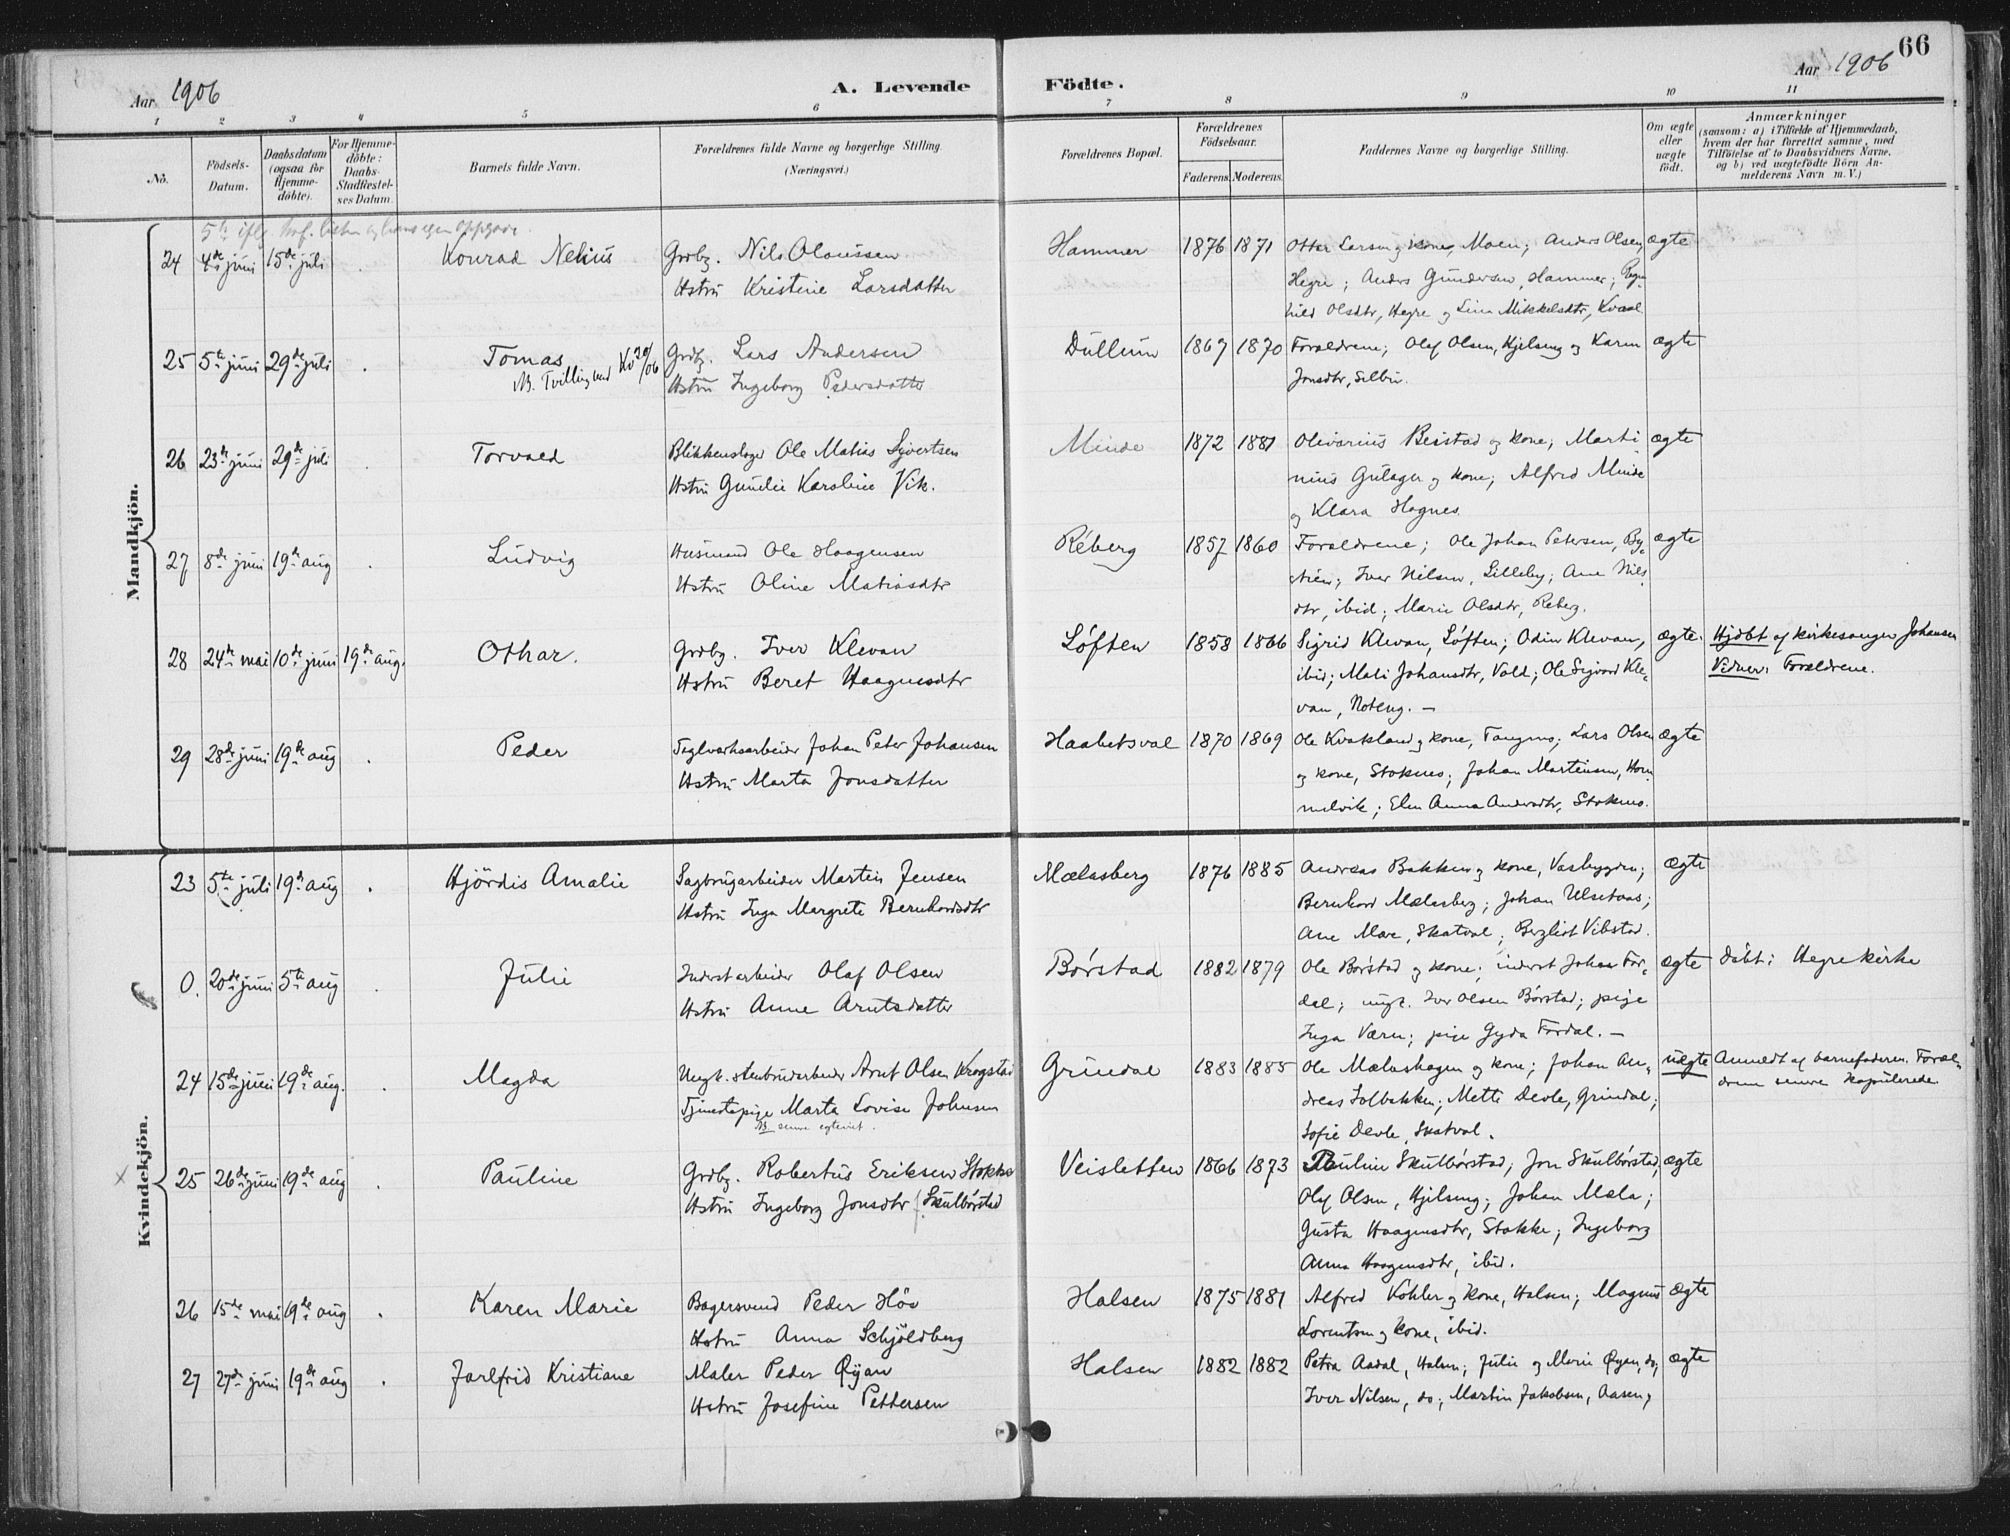 66
Aar 1906
A. Levende
Födte.
Aar 1906
1 2 3 4 5 6 7 8 9 10 11
No.
Födsels-Datum.
Daabsdatum (ogsaa for Hjemme-döbte).
For Hjemme-döbte: Daabs-Stadfæstel-ses Datum.
Barnets fulde Navn.
Forældrenes fulde Navne og borgerlige Stilling.
(Næringsvei.)
Forældrenes Bopæl.
Forældrenes Födselsaar.
Faderens. Moderens.
Faddernes Navne og borgerlige Stilling.
Om ægte eller uægte födt.
Anmærkninger
(saasom: a) i Tilfælde af Hjemmedaab,
hvem der har forrettet samme, med
Tilföielse af to Daabsvidners Navne.
og b) ved uægtefödte Börn An-
melderens Navn m. V.)
Mandkjön.
24 4de juni 15de juli Konrad Nelius Grdbg. Nils Olaussen Hammer 1876 1871 Ottar Larsen og kone, Moen; Anders Olsen ægte
Hustru Kristine Larsdatter Hegre; Anders Gundersen, Hammer; Ragn-
hild Olsdtr, Hegre og Lina Mikkelsdtr, Kvaal
25 5te juni 29de juli Tomas Grdbg. Lars Andersen Dullum 1867 1870 Forældrene; Olaf Olsen, Hjelseng og Karen ægte
NB. Tvilling med Kv 20/06 Hustru Ingeborg Pedersdatter Jonsdtr, Selbu.
26 23de juni 29de juli Torvald Blikkenslager Ole Matias Syvertsen Minde 1872 1881 Olivarius Beistad og kone; Marti- ægte
Hustru Gunelie Karoline Vik. nius Gulager og kone; Alfred Minde
og Klara Hognes.
27 8de juni 19de aug Ludvig Husmand Ole Haagensen Reberg 1857 1860 Forældrene; Ole Johan Petersen, By- ægte
Hustru Oline Matiasdtr Iver Nilsen, Lilleby; Ane Nils-
dtr, ibid; Marie Olsdtr, Reberg.
28 24de mai 10de juni 19de aug. Othar. Grdbg. Iver Klevan Løften 1858 1866 Sigrid Klevan, Løften; Odin Klevan, ægte. Hjdbt af kirkesanger Johansen
Hustru Beret Haagensdtr ibid; Mali Johansdtr, Vold; Ole Sigvard Kle- Vidner: Forældrene.
van, Noteng. —
29 28de juni 19de aug Peder Teglverksarbeider Johan Peter Johansen Haabetsval 1870 1869 Ole Kvakland og kone, Tangmo; Lars Olsen ægte
Hustru Marta Jonsdatter og kone, Stoknes; Johan Martinsen, Hom-
melvik; Elen Anna Andersdtr, Stokmo.
Kvindekjön.
23 5te juli 19de aug Hjördis Amalie Sagbrugarbeider Martin Jensen Mælasberg 1876 1885 Andreas Bakken og kone, Vasbygden; ægte
Hustru Inga Margrete Bernhardsdtr Bernhard Mælasberg; Johan Ulsetaas;
Ane Mare, Skatval; Berglist Vibstad.
0. 20de juni 5te aug Julie Inderst arbeider Olaf Olsen Børstad 1882 1879 Ole Børstad og kone; inderst Johan For- ægte døbt i Hegre kirke
Hustru Anne Arntsdatter dal; ungk. Iver Olsen Børstad; pige
Inga Værn; pige Gyda Fordal. —
24 15de juni 19de aug. Magda Ungk. stenbrudarbeider Arnt Olsen Krogstad Grindal 1883 1885 Ole Mælashagen og kone; Johan An- uægte Anmeldt af barnefaderen. Foræl-
Tjenestepige Marta Lovise Johnsen dreas Solbakken; Mette Devle, Grindal; drene senere kopulerede
NB senere egteviet. Sofie Devle, Skatval.
25 26de juni 19de aug Pauline Grdbg. Robertus Eriksen Stokke Veisletten 1866 1873 Pauline Skulbørstad; Jon Skulbørstad, ægte
Hustru Ingeborg Jonsdtr f. Skulbørstad Olaf Olsen, Hjelseng; Johan Mæla;
Gusta Haagensdtr, Stokke; Ingeborg
Anna Haagensdtr, ibid.
26 15de mai 19de aug Karen Marie Bagersvend Peder Høv Halsen 1875 1881 Alfred Kohler og kone, Halsen; Magnus ægte
Hustru Anna Schjöldberg Lorentsen og kone, ibid.
27 27de juni 19de aug Jarlfrid Kristiane Maler Peder Øyan Halsen 1882 1882 Petra Aadal, Halsen; Julie og Marie Øyan, do; ægte
Hustru Josefine Pettersen Iver Nilsen, do; Martin Jakobsen, Aasen,